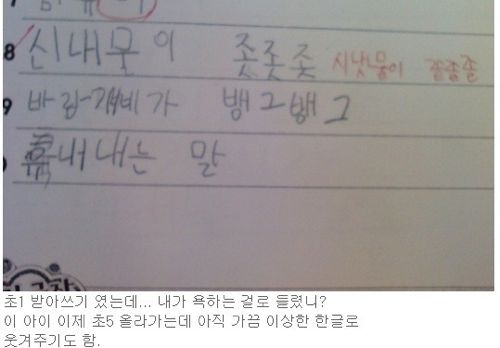 8 신내물이 좃좃좃 시냇물이 졸졸졸
9 바람개비가 뱅그뱅그
흉내내는 말
초1 받아쓰기 였는데... 내가 욕하는 걸로 들렸니?
이 아이 이제 초5 올라가는데 아직 가끔 이상한 한글로
웃겨주기도 함.